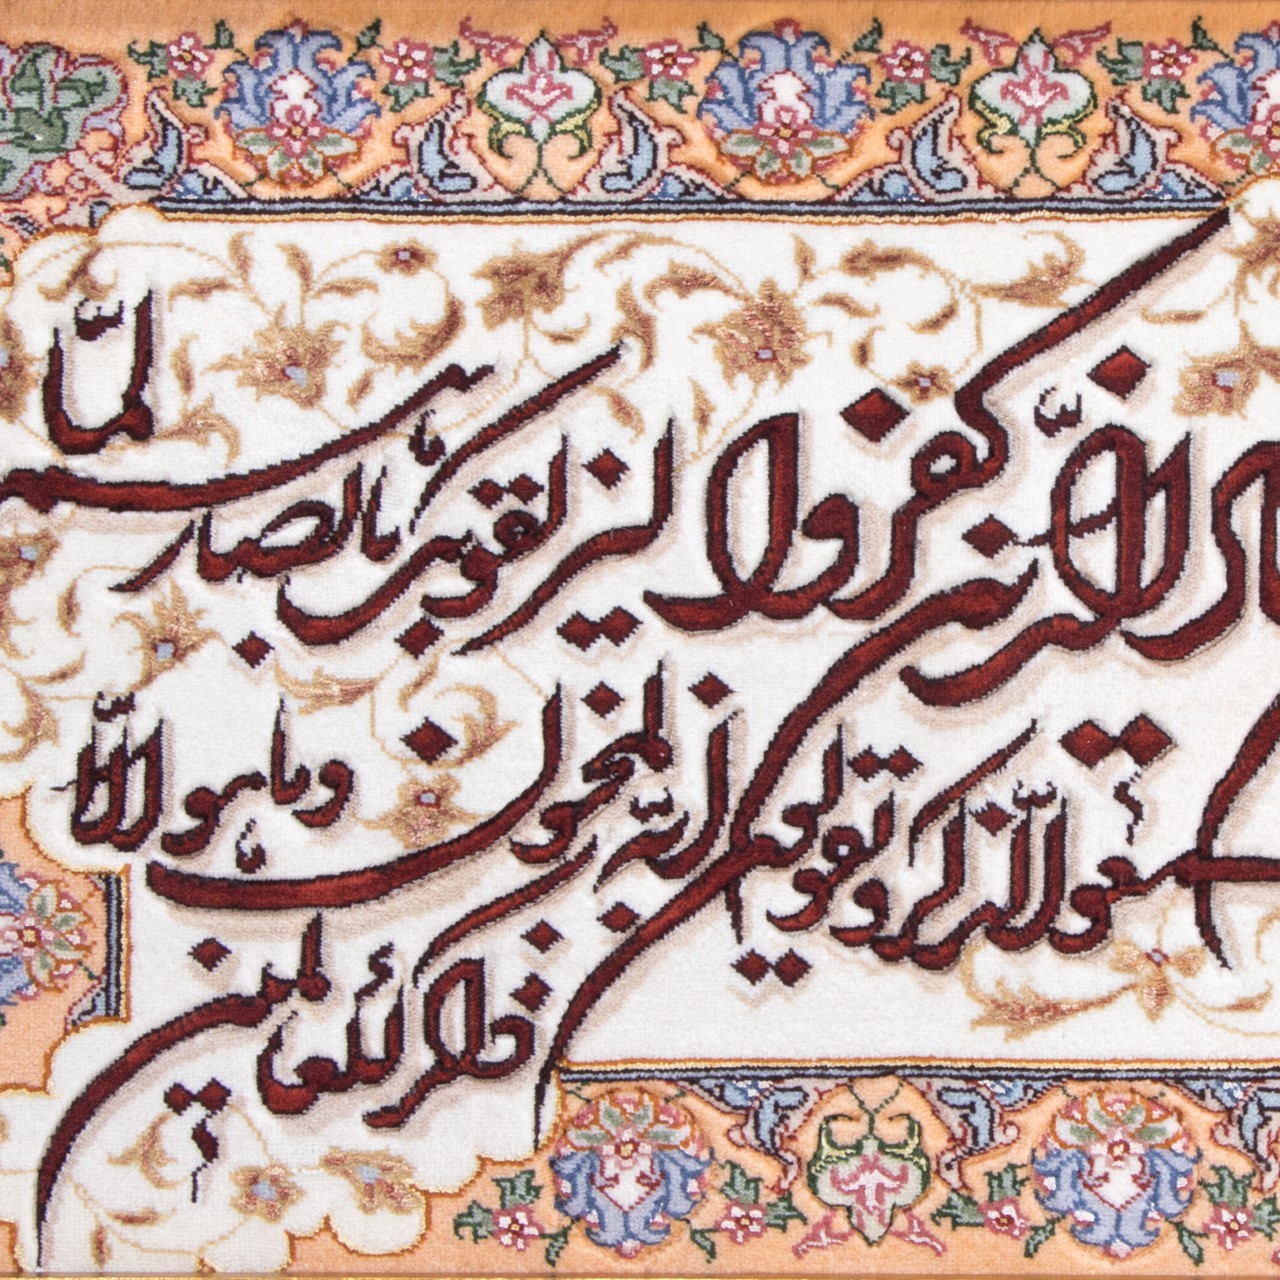 الذین کفروا لیزلقونک بابصارهم لمّا
سمعوا الذّکر و یقولون انّه لمجنون و ما هو الّا
ذکر للعالمین